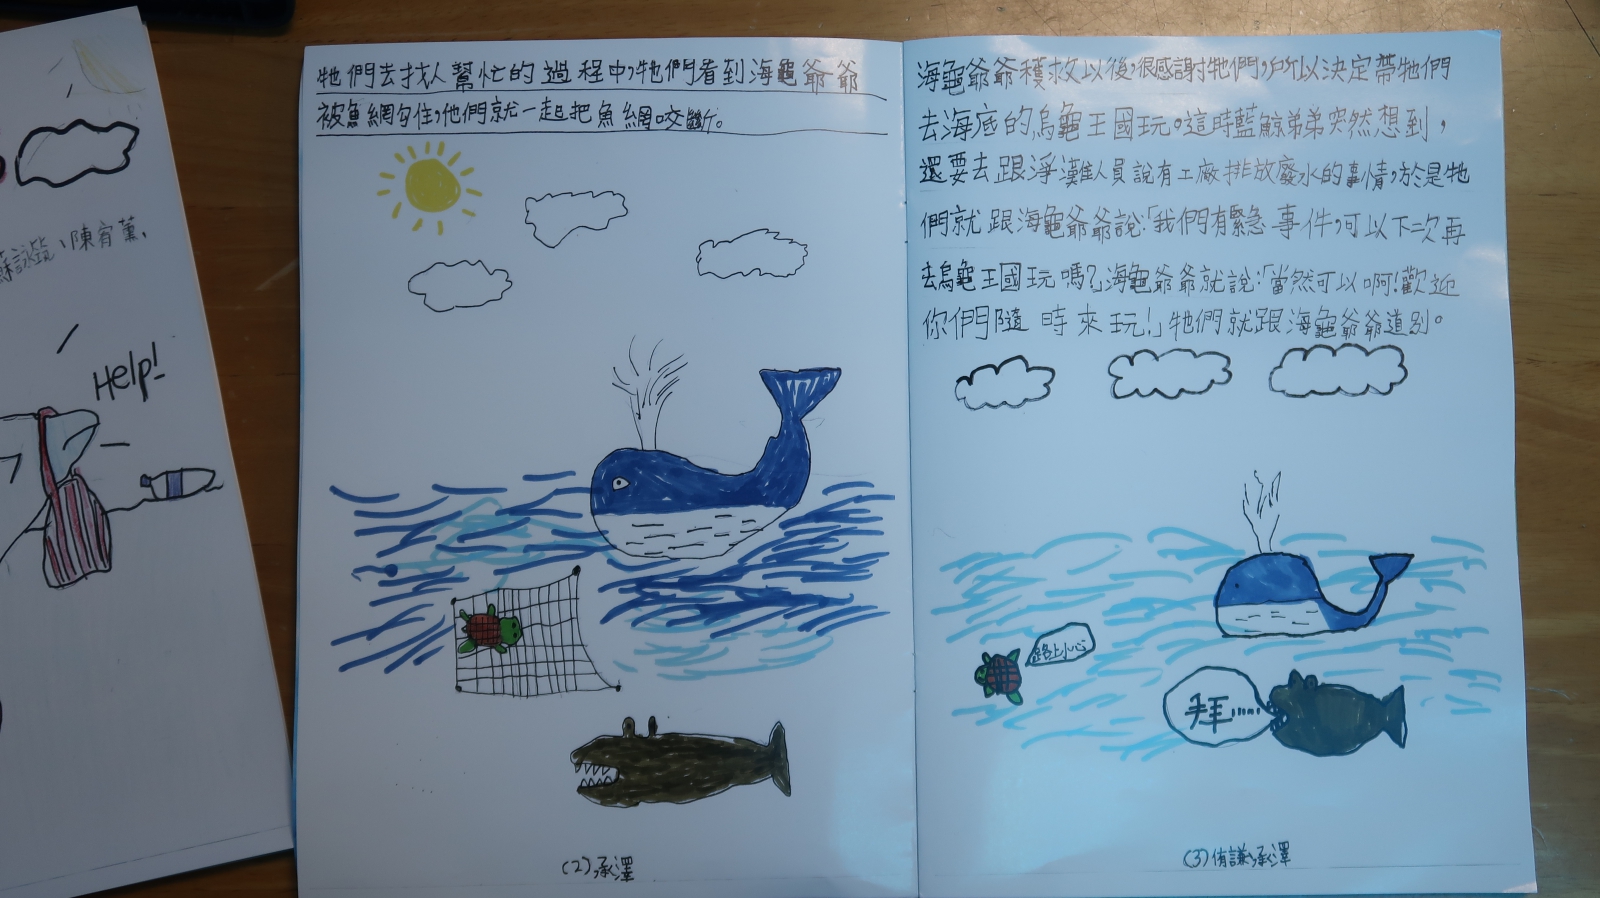 陳宥薰、
Help!
牠們去找人幫忙的過程中,牠們看到海龜爺爺
被魚網勾住,他們就一起把魚網咬斷。
(2)承澤
海龜爺爺穫救以後,很感謝牠們,所以決定帶牠們
去海底的烏龜王國玩。這時藍鯨弟弟突然想到,
還要去跟淨灘人員說有工廠排放廢水的事情,於是牠
們就跟海龜爺爺說:「我們有緊急事件,可以下次再
去烏龜王國玩嗎?」海龜爺爺就說:「當然可以啊!歡迎
你們隨時來玩!」牠們就跟海龜爺爺道別。
路上小心
拜......
(3)侑謙、承澤